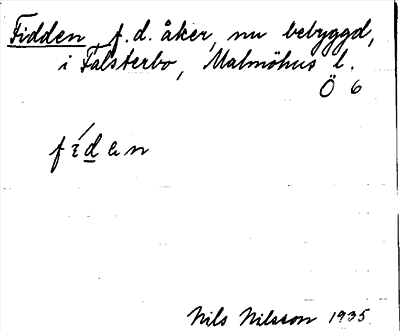 Fidden f.d. åker, nu bebyggd,
i Falsterbo, Malmöhus l.
Ö 6
fídən
Nils Nilsson 1935